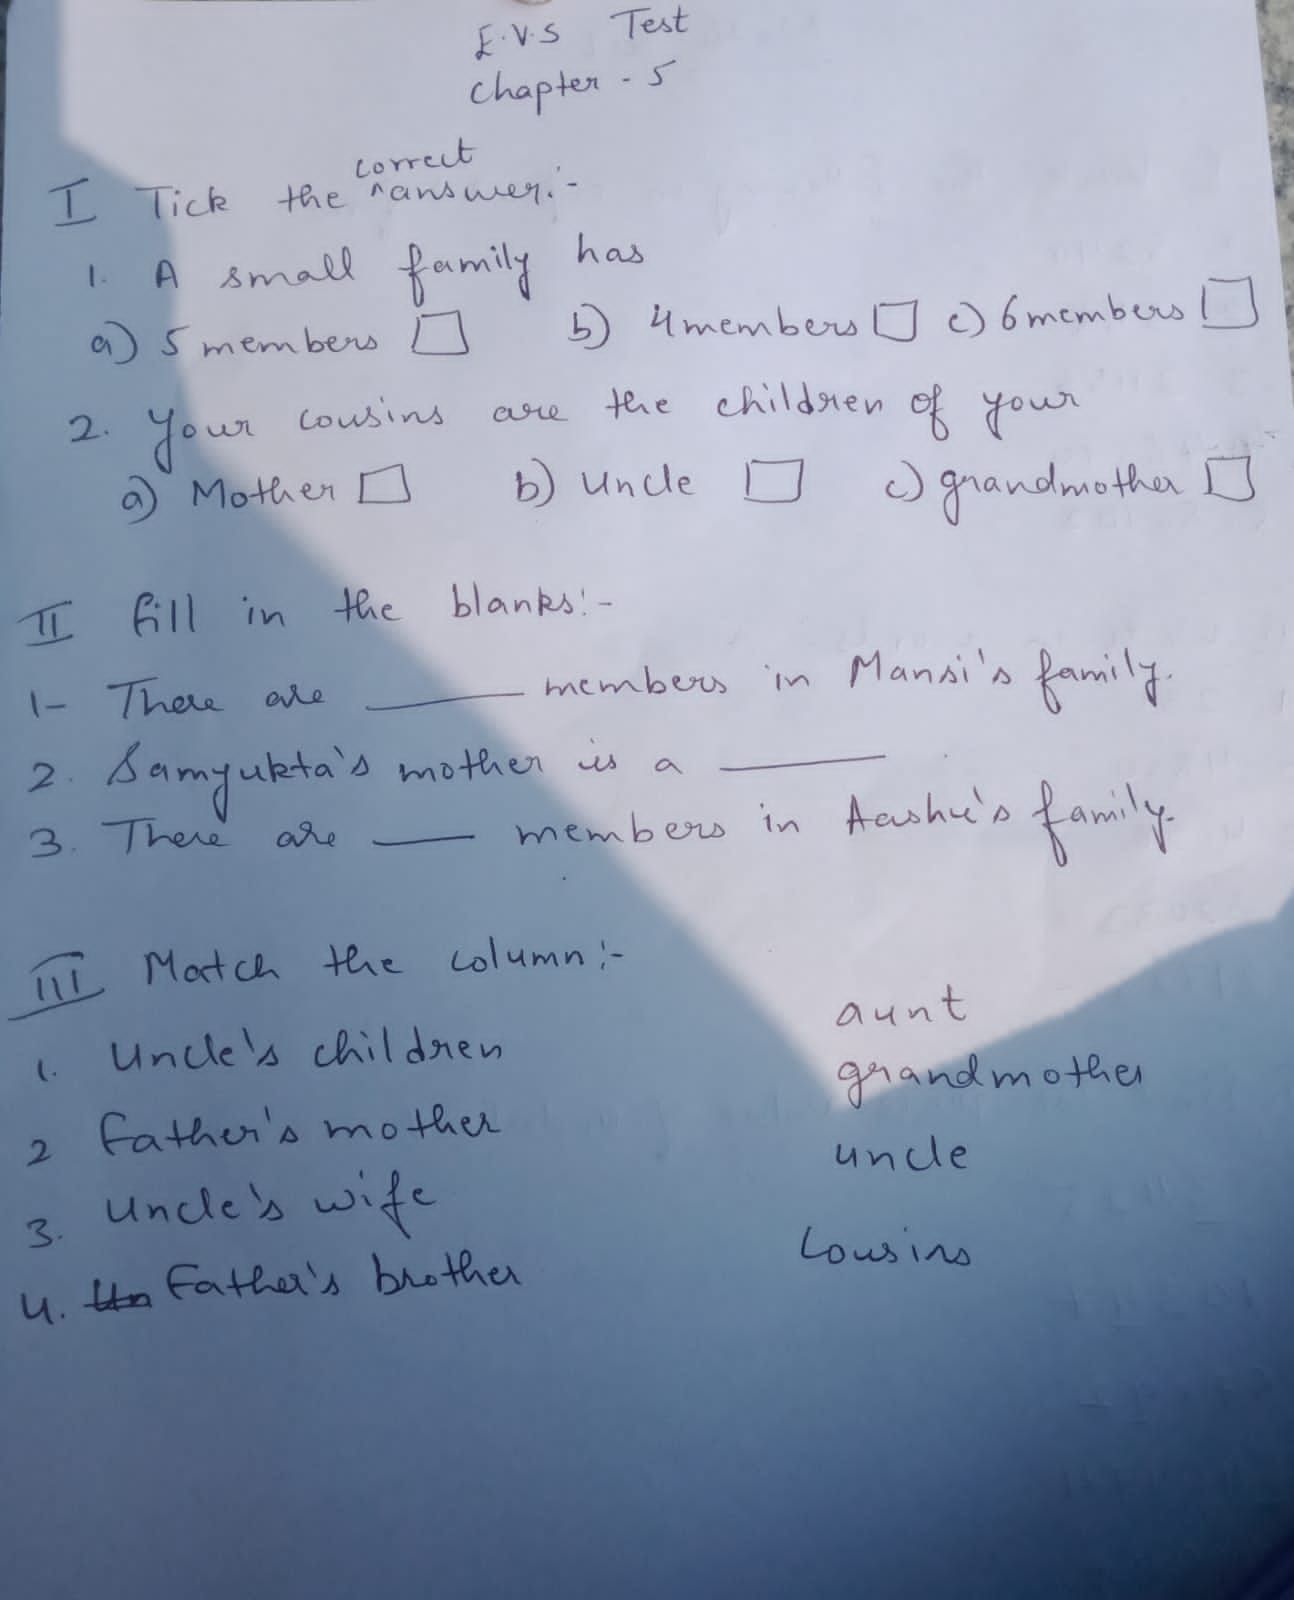 E.V.S Test
Chapter - 5
correct
I Tick the ^answer:-
1. A small family has
a) 5 members b) 4 members c) 6 members
2. Your cousins are the children of your
a) Mother b) Uncle c) grandmother
II Fill in the blanks:-
1- There are ______ members in Mansi's family.
2. Samyukta's mother is a ______
3. There are ____ members in Aashu's family.
III Match the column:-
1. Uncle's children aunt
2 Father's mother grandmother
3. Uncle's wife uncle
4. Father's brother Cousins